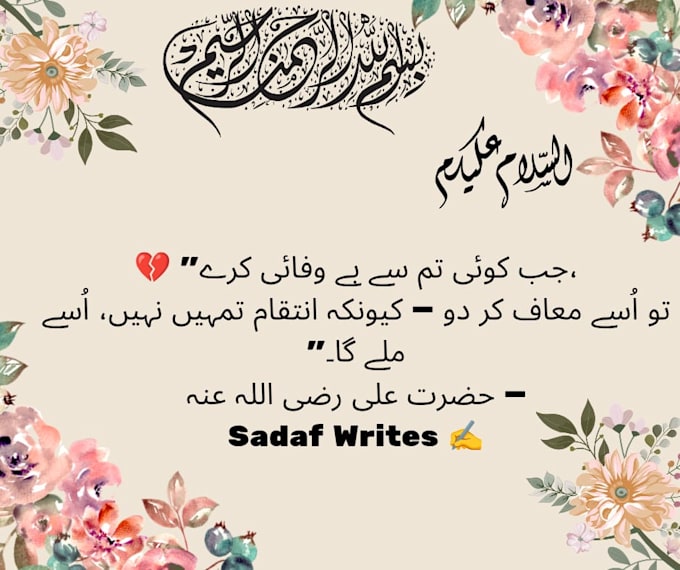 بسم الله الرحمن الرحيم
السلام علیکم
💔 ”جب کوئی تم سے بے وفائی کرے،
تو اُسے معاف کر دو – کیونکہ انتقام تمہیں نہیں، اُسے
ملے گا۔”
– حضرت علی رضی اللہ عنہ
Sadaf Writes ✍️